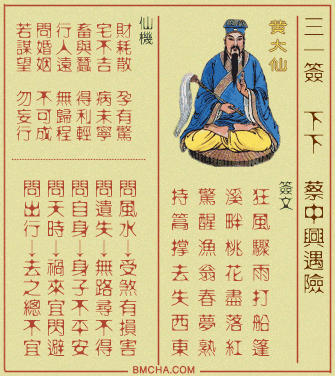 三一簽 下下 蔡中興遇險
黃大仙
簽文
狂風驟雨打船篷
溪畔桃花盡落紅
驚醒漁翁春夢熟
持篙撐去失西東
仙機
財耗散 孕有驚
宅不吉 病未寧
畜與蠶 得利輕
行人遠 無歸程
問婚姻 不可成
若謀望 勿妄行
問風水→受煞有損害
問遺失→無路尋不得
問自身→身子不平安
問天時→禍來宜閃避
問出行→去之總不宜
BMCHA.COM